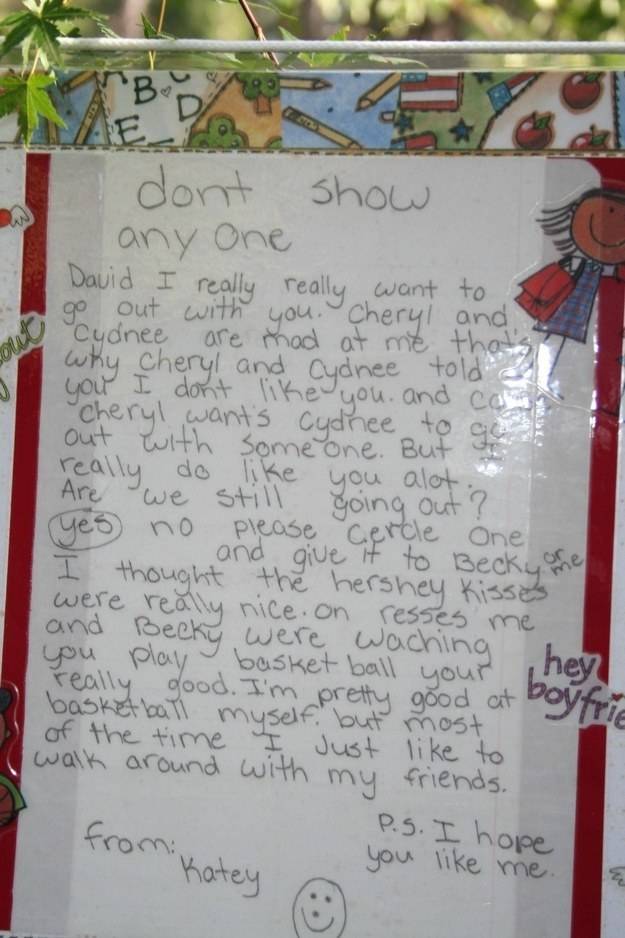 A B C
D
E
dont show
any one
David I really really want to
go out with you. Cheryl and
Cydnee are mad at me that's
why Cheryl and Cydnee told
you I dont like you. and
Cheryl want's Cydnee to go
out with someone. But I
really do like you alot.
Are we still going out?
yes no please Cercle one
and give it to Becky or me
I thought the hershey kisses
were really nice. on resses me
and Becky were waching
you play basket ball your
really good. I'm pretty good at
basketball myself. but most
of the time I Just like to
walk around with my friends.
from:
Katey
P.S. I hope
you like me.
out
hey
boyfrie